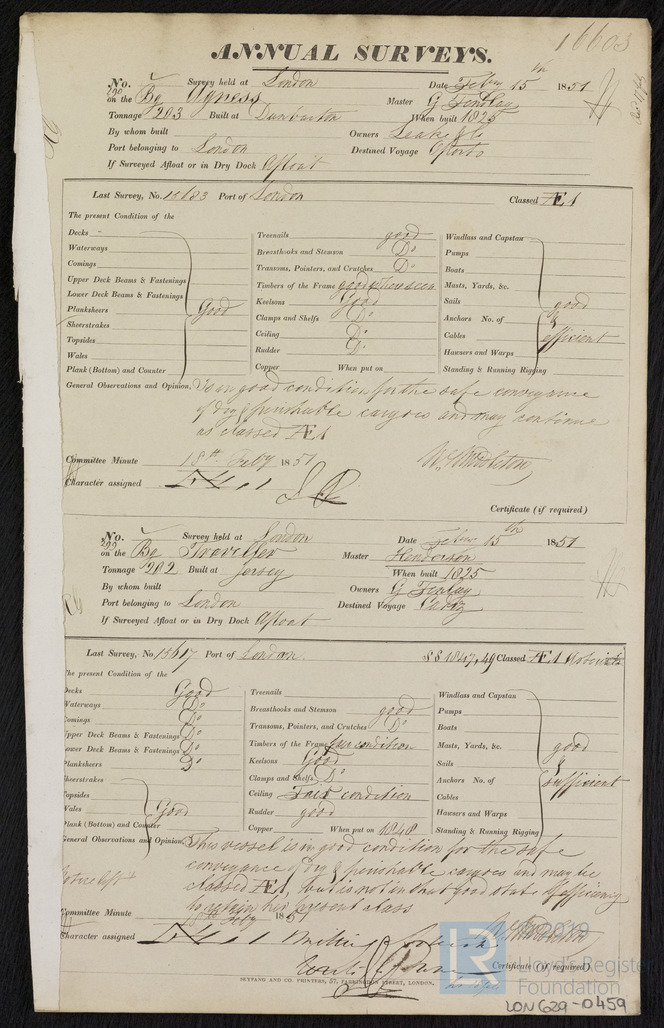 16603
ANNUAL SURVEYS.
No. Survey held at London Date Feby 15th 1851
on the Bg Agness Master G Findlay
Tonnage 203 Built at Dunbarton When built 1825
By whom built Owners Leake & Co
Port belonging to London Destined Voyage Oporto
If Surveyed Afloat or in Dry Dock Afloat
Last Survey, No. 15183 Port of London Classed Æ1
The present Condition of the
Decks
Waterways
Comings
Upper Deck Beams & Fastenings
Lower Deck Beams & Fastenings
Planksheers Good
Sheerstrakes
Topsides
Wales
Plank (Bottom) and Counter
Treenails good
Breasthooks and Stemson Do
Transoms, Pointers, and Crutches Do
Timbers of the Frame good where seen
Keelsons Good
Clamps and Shelfs Do
Ceiling Do
Rudder Do
Copper When put on
Windlass and Capstan
Pumps
Boats
Masts, Yards, &c.
Sails good
Anchors No. of &
Cables efficient
Hawsers and Warps
Standing & Running Rigging
General Observations and Opinion, Is in good condition for the safe conveyance
of dry & perishable cargoes and may continue
as classed Æ1
Committee Minute 18th Feby 1851
Character assigned Æ1
Certificate (if required)
No. Survey held at London Date Feby 15th 1851
on the Bg Traveller Master Henderson
Tonnage 202 Built at Jersey When built 1825
By whom built Owners G Finlay
Port belonging to London Destined Voyage Cadiz
If Surveyed Afloat or in Dry Dock Afloat
Last Survey, No. 15617 Port of London. SS 1847,49 Classed Æ1
The present Condition of the
Decks Good
Waterways Do
Comings Do
Upper Deck Beams & Fastenings Do
Lower Deck Beams & Fastenings Do
Planksheers Do
Sheerstrakes
Topsides
Wales Good
Plank (Bottom) and Counter
Treenails
Breasthooks and Stemson good
Transoms, Pointers, and Crutches Do
Timbers of the Frame fair condition
Keelsons Good
Clamps and Shelfs Do
Ceiling Fair condition
Rudder good
Copper When put on 1848
Windlass and Capstan
Pumps
Boats
Masts, Yards, &c. good
Sails &
Anchors No. of sufficient
Cables
Hawsers and Warps
Standing & Running Rigging
General Observations and Opinion, This vessel is in good condition for the safe
conveyance of dry & perishable cargoes and may be
classed Æ1, but is not in that good state of efficiency
to retain her present class
Committee Minute 18th Feby 1851
Character assigned Æ1
Certificate (if required)
SEYFANG AND CO. PRINTERS, 57, FARRINGDON STREET, LONDON.
© 2019
Lloyd's Register
Foundation
LON629-0459